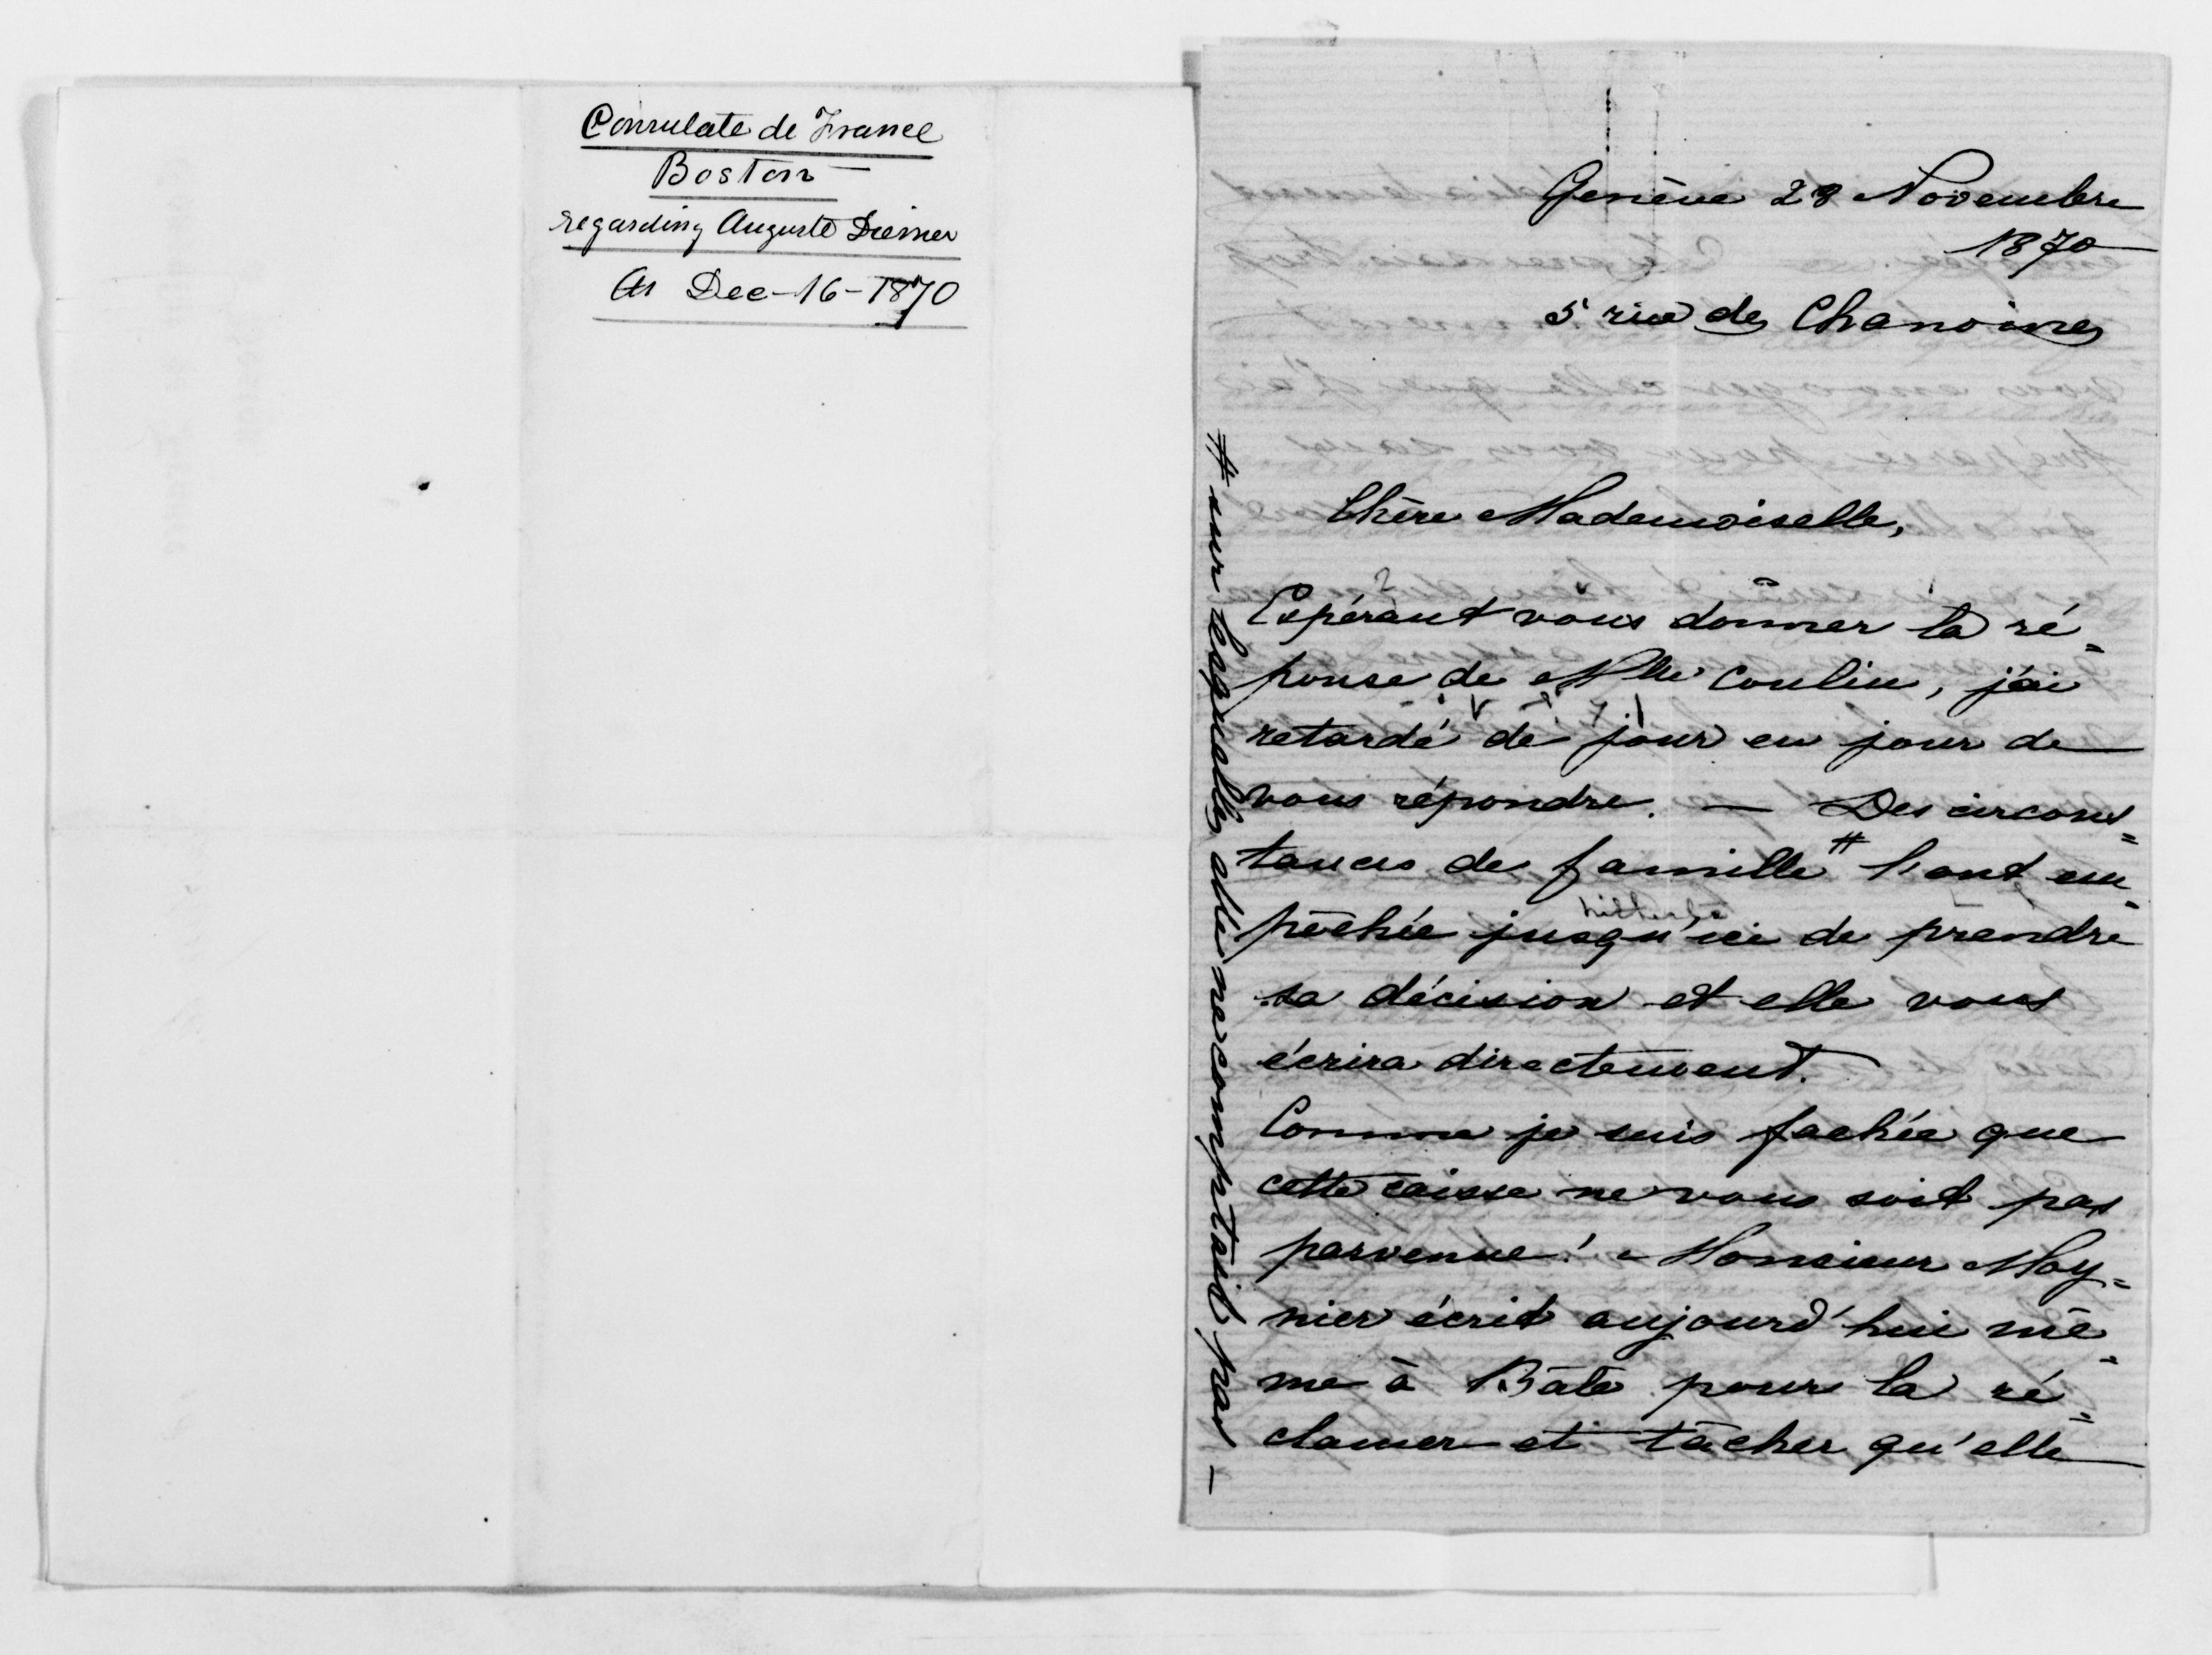 Consulate de France
Boston
regarding Auguste Diemer
As Dec-16-1870
Genève 28 Novembre
1870
5 rue des Chanoines
Chère Mademoiselle,
Espérant vous donner la ré=
ponse de Mlle Coulin, j'ai
retardé de jour en jour de
vous répondre. — Des circons=
tances de famille # l'ont em=
hitherto
pêchée jusqu'ici de prendre
sa décision et elle vous
écrira directement.
Comme je suis fachée que
cette caisse ne vous soit pas
parvenue! Monsieur Moy=
nier écrit aujourd'hui mê=
me à Bâle pour la ré=
clamer et tâcher qu'elle
# sur lesquelles elle ne comptait pas —